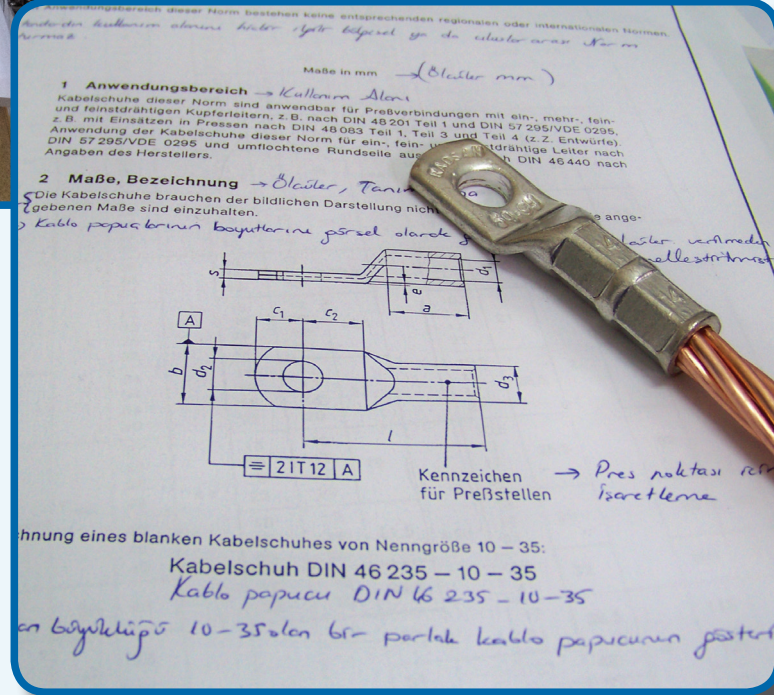 Anwendungsbereich dieser Norm bestehen keine entsprechenden regionalen oder internationalen Normen.
Maße in mm → (Ölçüler mm)
1 Anwendungsbereich → Kullanım Alanı
Kabelschuhe dieser Norm sind anwendbar für Preßverbindungen mit ein-, mehr-, fein-
und feinstdrähtigen Kupferleitern, z.B. nach DIN 48 201 Teil 1 und DIN 57 295/VDE 0295,
z.B. mit Einsätzen in Pressen nach DIN 48 083 Teil 1, Teil 3 und Teil 4 (z.Z. Entwürfe).
Anwendung der Kabelschuhe dieser Norm für ein-, fein- drähtige Leiter nach
DIN 57 295/VDE 0295 und umflochtene Rundseile aus DIN 46 440 nach
Angaben des Herstellers.
2 Maße, Bezeichnung → Ölçüler,
Die Kabelschuhe brauchen der bildlichen Darstellung nich e ange-
gebenen Maße sind einzuhalten.
Kablo papuçlarının boyutlarını görsel olarak
s
d1
e
a
A
c1
c2
b
d2
d3
l
2 IT 12 A
Kennzeichen → Pres noktası
für Preßstellen işaretleme
chnung eines blanken Kabelschuhes von Nenngröße 10 – 35:
Kabelschuh DIN 46 235 – 10 – 35
Kablo papucu DIN 46 235 – 10 – 35
an büyüklüğü 10 – 35 olan bir parlak kablo papucunun gösteri